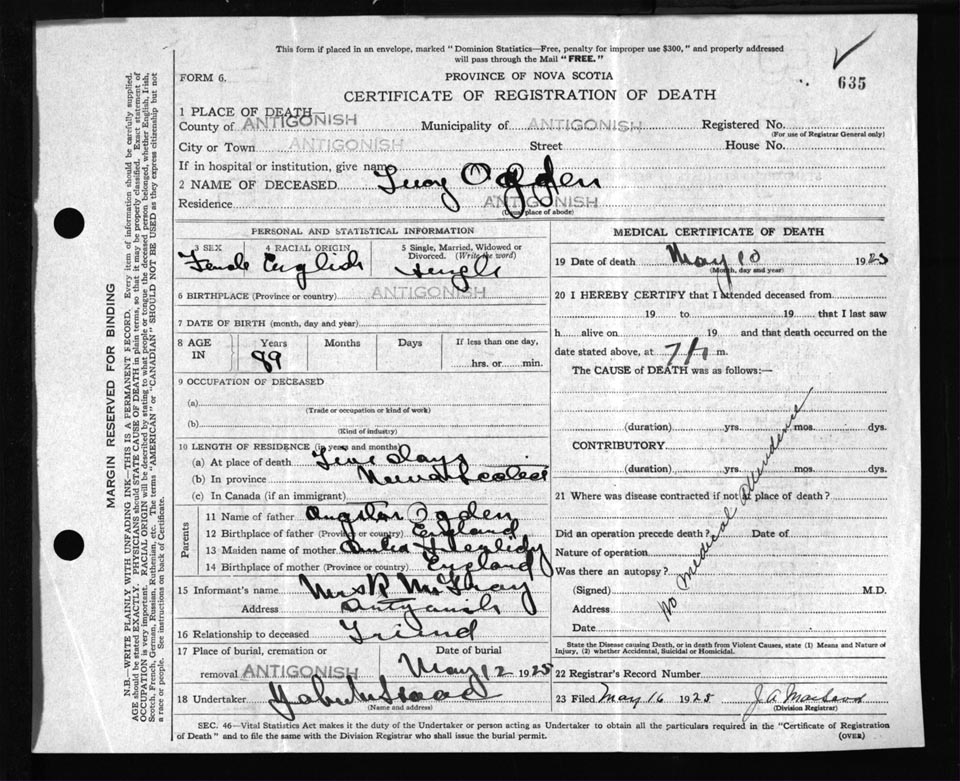 This form if placed in an envelope, marked "Dominion Statistics—Free, penalty for improper use $300," and properly addressed
will pass through the Mail "FREE."
FORM 6.
PROVINCE OF NOVA SCOTIA
635
CERTIFICATE OF REGISTRATION OF DEATH
1 PLACE OF DEATH
County of ANTIGONISH Municipality of ANTIGONISH Registered No.
(For use of Registrar General only)
City or Town ANTIGONISH Street House No.
If in hospital or institution, give name
2 NAME OF DECEASED Lucy Ogden
Residence ANTIGONISH
(Usual place of abode)
PERSONAL AND STATISTICAL INFORMATION
3 SEX 4 RACIAL ORIGIN 5 Single, Married, Widowed or
Divorced. (Write the word)
Female English Single
6 BIRTHPLACE (Province or country) ANTIGONISH
7 DATE OF BIRTH (month, day and year)
8 AGE IN Years Months Days If less than one day,
89 hrs. or min.
9 OCCUPATION OF DECEASED
(a)
(Trade or occupation or kind of work)
(b)
(Kind of industry)
10 LENGTH OF RESIDENCE (in years and months)
(a) At place of death days
(b) In province Nova Scotia
(c) In Canada (if an immigrant)
Parents
11 Name of father Ogden
12 Birthplace of father (Province or country) England
13 Maiden name of mother
14 Birthplace of mother (Province or country) England
15 Informant's name Mrs R McGray
Address Antigonish
16 Relationship to deceased Friend
17 Place of burial, cremation or Date of burial
removal ANTIGONISH May 12 1925
18 Undertaker
(Name and address)
MEDICAL CERTIFICATE OF DEATH
19 Date of death May 10 1925
(Month, day and year)
20 I HEREBY CERTIFY that I attended deceased from
19 to 19 that I last saw
h alive on 19 and that death occurred on the
date stated above, at m.
The CAUSE of DEATH was as follows:—
(duration) yrs. mos. dys.
CONTRIBUTORY
(duration) yrs. mos. dys.
No medical attendence
21 Where was disease contracted if not at place of death?
Did an operation precede death? Date of
Nature of operation
Was there an autopsy?
(Signed) M.D.
Address
Date
State the Disease causing Death, or in death from Violent Causes, state (1) Means and Nature of
Injury, (2) whether Accidental, Suicidal or Homicidal.
22 Registrar's Record Number
23 Filed May 16 1925 J. A. MacLeod
(Division Registrar)
SEC. 46—Vital Statistics Act makes it the duty of the Undertaker or person acting as Undertaker to obtain all the particulars required in the "Certificate of Registration
of Death" and to file the same with the Division Registrar who shall issue the burial permit.
(OVER)
MARGIN RESERVED FOR BINDING
N.B.—WRITE PLAINLY WITH UNFADING INK—THIS IS A PERMANENT RECORD. Every item of information should be carefully supplied.
AGE should be stated EXACTLY. PHYSICIANS should STATE CAUSE OF DEATH in plain terms, so that it may be properly classified. Exact statement of
OCCUPATION is very important. RACIAL ORIGIN will be described by stating to what people or tongue the deceased person belonged, whether English, Irish,
Scotch, French, German, Russian, Ruthenian, etc. The terms "AMERICAN" or "CANADIAN" SHOULD NOT BE USED as they express citizenship but not
a race or people. See instructions on back of Certificate.